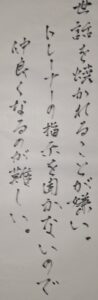 世話を焼かれることが嫌い。
トレーナーの指示を聞かないので
仲良くなるのが難しい。